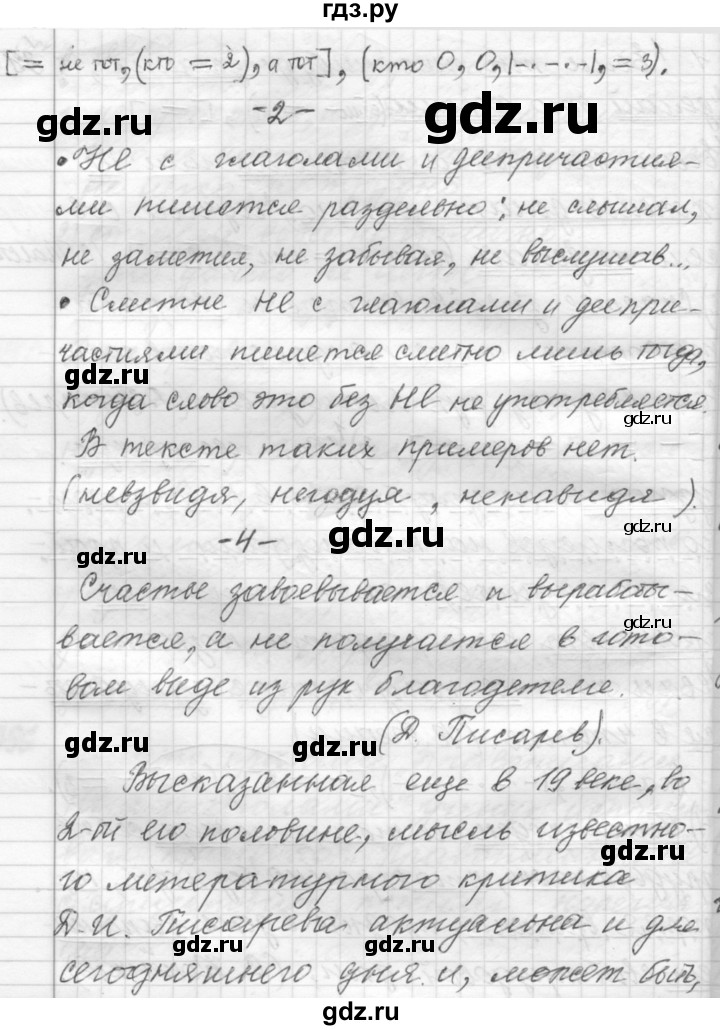 гдз.ру
[= не тот, (кто = 2), а тот], (кто О, О, |-.-.-|, = 3).
-2-
• Не с глаголами и деепричастия-
ми пишется раздельно: не слышал,
не заметил, не забывая, не выслушав...
• Слитне не с глаголами и деепри-
частиями пишется слитно лишь тогда,
когда слово это без не не употребляется.
В тексте таких примеров нет.
(невзвидя, негодуя, ненавидя).
-4-
Счастье завоевывается и вырабаты-
вается, а не получается в гото-
вом виде из рук благодетеля.
(Д. Писарев).
Высказанная еще в 19 веке, во
2-ой его половине, мысль известно-
го литературного критика
Д.И. Писарева актуальна и для
сегодняшнего дня и, может быть,
gdz.ru